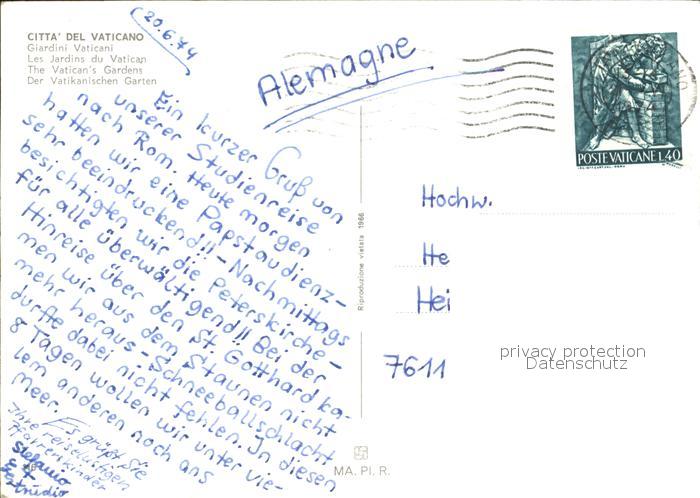 (20.6.74
CITTA' DEL VATICANO
Giardini Vaticani
Les Jardins du Vatican
The Vatican's Gardens
Der Vatikanischen Garten
Alemagne
POSTE VATICANE L.40
Ein kurzer Gruß von
unserer Studienreise
nach Rom. Heute morgen
hatten wir eine Papstaudienz-
sehr beeindruckend!! - Nachmittags
besichtigten wir die Peterskirche -
für alle überwältigend!! Bei der
Hinreise über den St. Gotthard ka-
men wir aus dem Staunen nicht
mehr heraus - Schneeballschlacht
durfte dabei nicht fehlen. In diesen
8 Tagen wollen wir unter vie-
lem anderen noch ans
Meer.
Es grüßt Sie
Ihre reiselustigen
Pfarreikinder
Stefanio
Hochw.
He
Hei
7611
privacy protection
Datenschutz
Riproduzione vietata 1966
MA. PI. R.